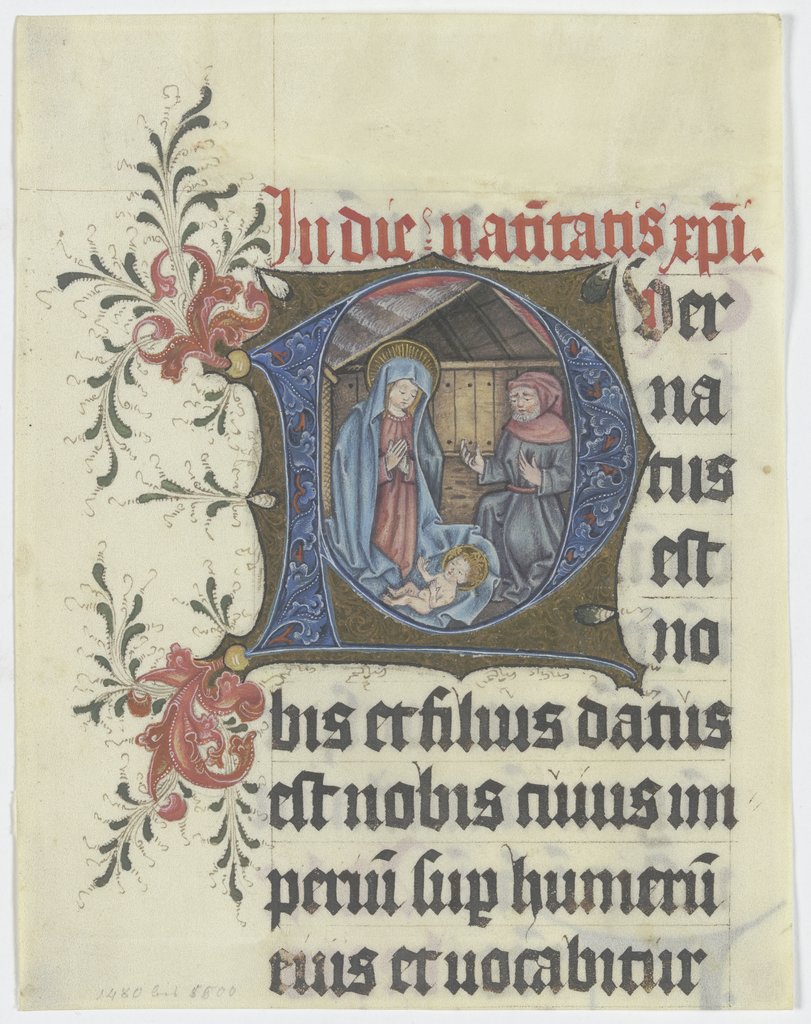 In die natīitatis xp̄i.
Puer
na
tus
est
no
bis et filius datus
est nobis cuius im
periū sup humerū
eius et uocabitur
1480 bis 1500